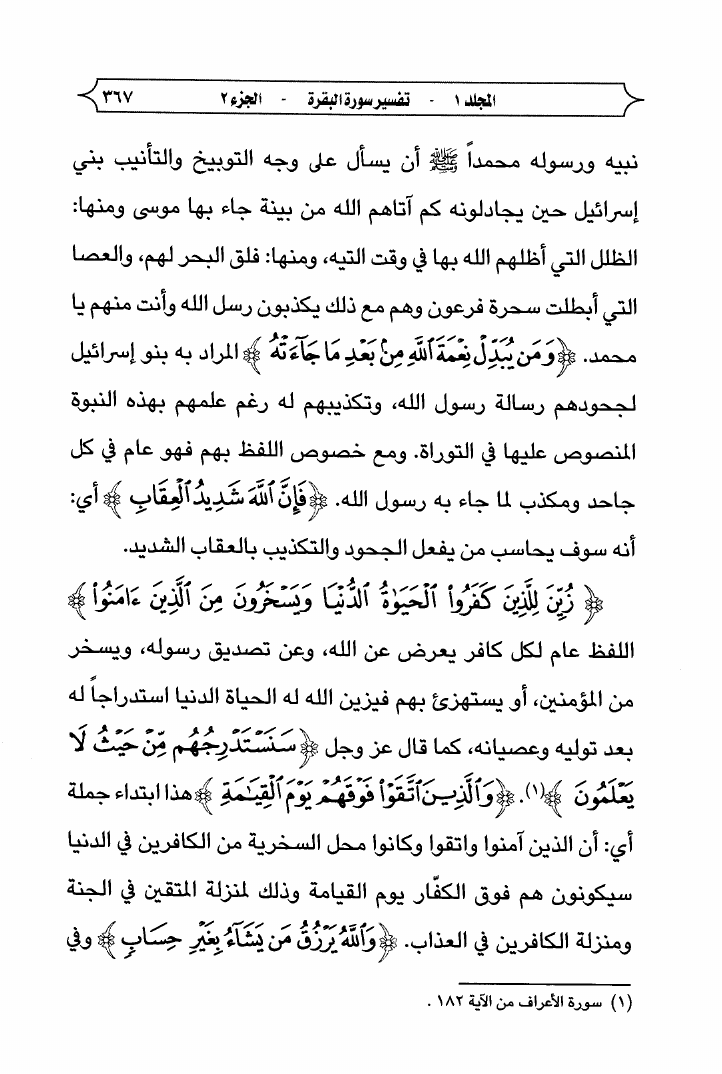 المجلد ١ - تفسير سورة البقرة - الجزء ٢ ٣٦٧
نبيه ورسوله محمداً ﷺ أن يسأل على وجه التوبيخ والتأنيب بني
إسرائيل حين يجادلونه كم آتاهم الله من بينة جاء بها موسى ومنها:
الظلل التي أظلهم الله بها في وقت التيه، ومنها: فلق البحر لهم، والعصا
التي أبطلت سحرة فرعون وهم مع ذلك يكذبون رسل الله وأنت منهم يا
محمد. ﴿وَمَن يُبَدِّلْ نِعْمَةَ ٱللَّهِ مِنۢ بَعْدِ مَا جَآءَتْهُ﴾ المراد به بنو إسرائيل
لجحودهم رسالة رسول الله، وتكذيبهم له رغم علمهم بهذه النبوة
المنصوص عليها في التوراة. ومع خصوص اللفظ بهم فهو عام في كل
جاحد ومكذب لما جاء به رسول الله. ﴿فَإِنَّ ٱللَّهَ شَدِيدُ ٱلْعِقَابِ﴾ أي:
أنه سوف يحاسب من يفعل الجحود والتكذيب بالعقاب الشديد.
﴿زُيِّنَ لِلَّذِينَ كَفَرُوا۟ ٱلْحَيَوٰةُ ٱلدُّنْيَا وَيَسْخَرُونَ مِنَ ٱلَّذِينَ ءَامَنُوا۟﴾
اللفظ عام لكل كافر يعرض عن الله، وعن تصديق رسوله، ويسخر
من المؤمنين، أو يستهزئ بهم فيزين الله له الحياة الدنيا استدراجاً له
بعد توليه وعصيانه، كما قال عز وجل ﴿سَنَسْتَدْرِجُهُم مِّنْ حَيْثُ لَا
يَعْلَمُونَ﴾(١). ﴿وَٱلَّذِينَ ٱتَّقَوْا۟ فَوْقَهُمْ يَوْمَ ٱلْقِيَٰمَةِ﴾ هذا ابتداء جملة
أي: أن الذين آمنوا واتقوا وكانوا محل السخرية من الكافرين في الدنيا
سيكونون هم فوق الكفّار يوم القيامة وذلك لمنزلة المتقين في الجنة
ومنزلة الكافرين في العذاب. ﴿وَٱللَّهُ يَرْزُقُ مَن يَشَآءُ بِغَيْرِ حِسَابٍ﴾ وفي
(١) سورة الأعراف من الآية ١٨٢ .